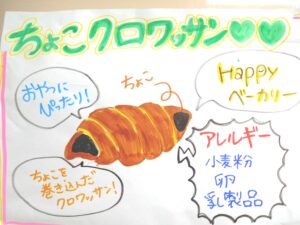 ちょこクロワッサン♡♡
おやつに
ぴったり！
ちょこ
Happy
ベーカリー
ちょこを
巻き込んだ
クロワッサン！
アレルギー
小麦粉
卵
乳製品